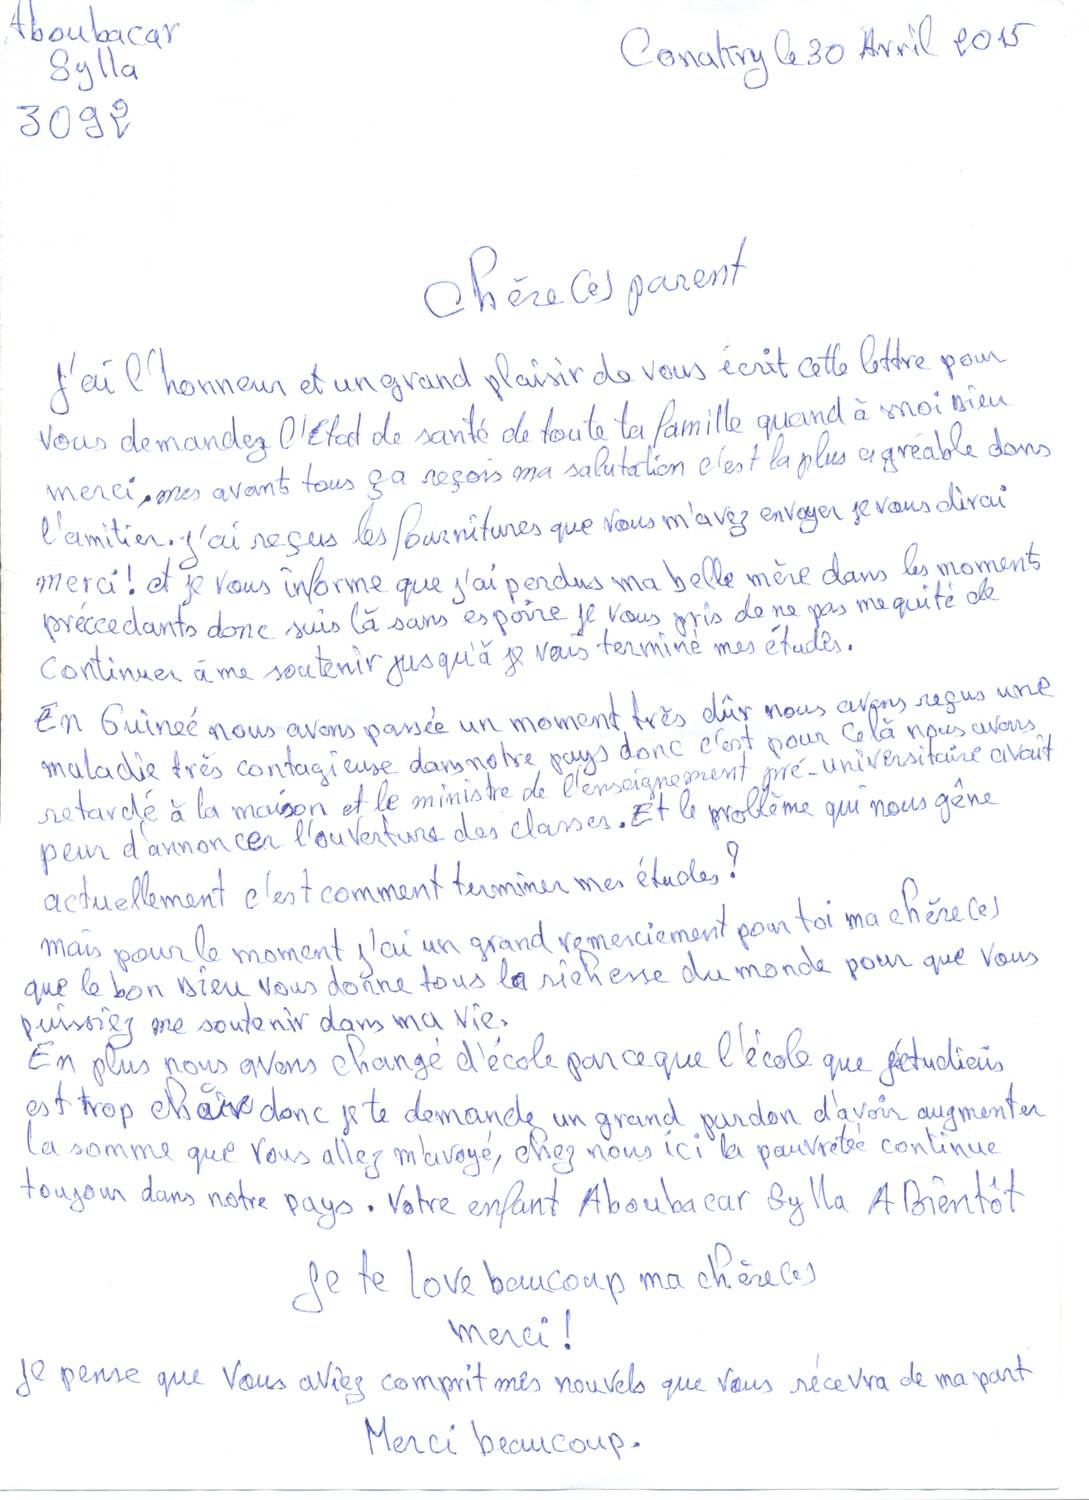 Aboubacar
Sylla
3092
Conakry le 30 Avril 2015
Chère(es) parent
J'ai l'honneur et un grand plaisir de vous écrit cette lettre pour
vous demandez l'État de santé de toute ta famille quand à moi Dieu
merci, mes avants tous ça reçois ma salutation c'est la plus agréable dans
l'amitier. J'ai reçus les fournitures que vous m'avez envoyer je vous dirai
merci! et je vous informe que j'ai perdus ma belle mère dans les moments
préccedants donc suis là sans espoire je vous pris de ne pas me quité de
continuer à me soutenir jusqu'à je vais terminé mes études.
En Guineé nous avons passée un moment très dûr nous avons reçus une
maladie très contagieuse dans notre pays donc c'est pour celà nous avons
retardé à la maison et le ministre de l'enseignement pré-universitaire avait
peur d'annoncer l'ouverture des classes. Et le problème qui nous gêne
actuellement c'est comment terminer mes études?
mais pour le moment j'ai un grand remerciement pour toi ma chère(es)
que le bon Dieu vous donne tous la richesse du monde pour que vous
puissiez me soutenir dans ma vie.
En plus nous avons changé d'école parceque l'école que j'étudiais
est trop chaire donc je te demande un grand pardon d'avoir augmenter
la somme que vous allez m'avoyé, chez nous ici la pauvretée continue
toujour dans notre pays. Votre enfant Aboubacar Sylla A Bientôt
Je te love beaucoup ma chère(es)
merci!
Je pense que vous aviez comprit mes nouvels que vous récevra de ma part
Merci beaucoup.